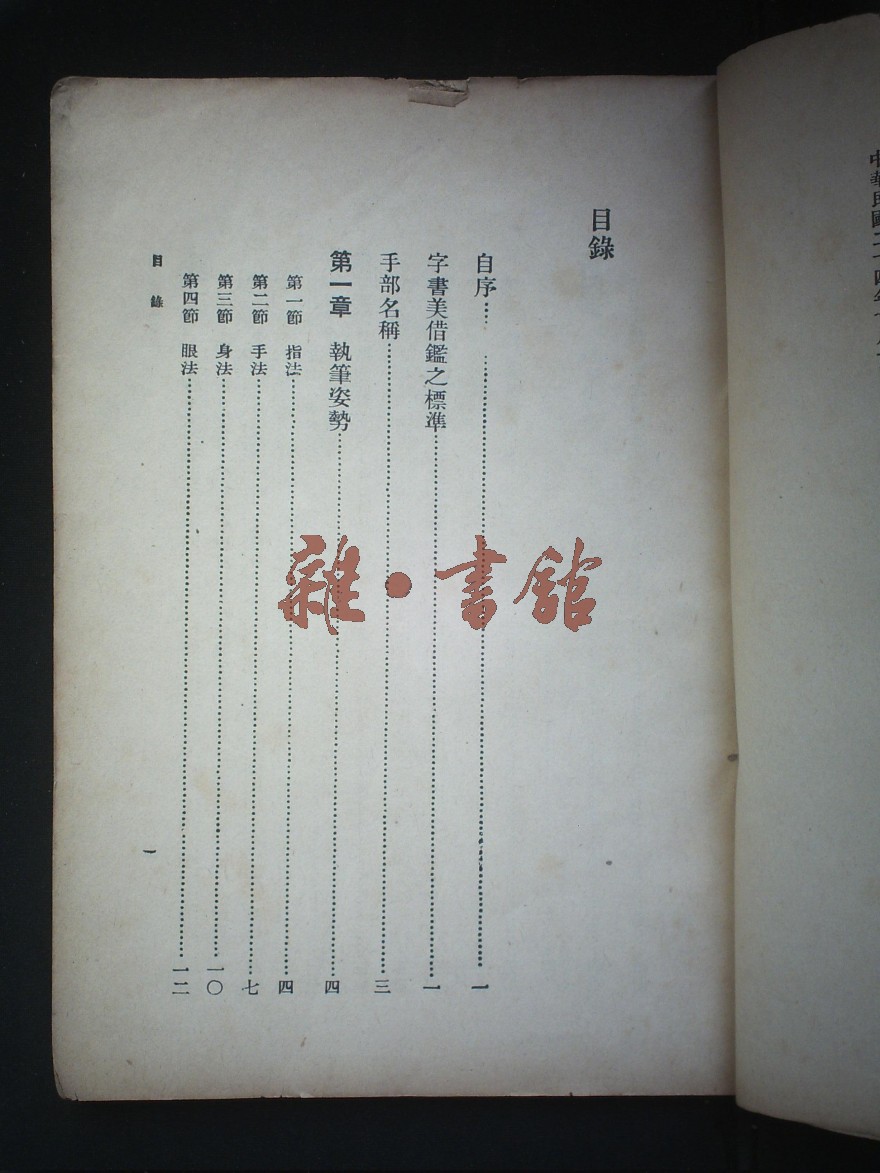 中華民國二十四年
目錄
自序 一
字書美借鑑之標準 一
手部名稱 三
第一章 執筆姿勢 四
第一節 指法 四
第二節 手法 七
第三節 身法 一〇
第四節 眼法 一二
目錄 一
雜·書館